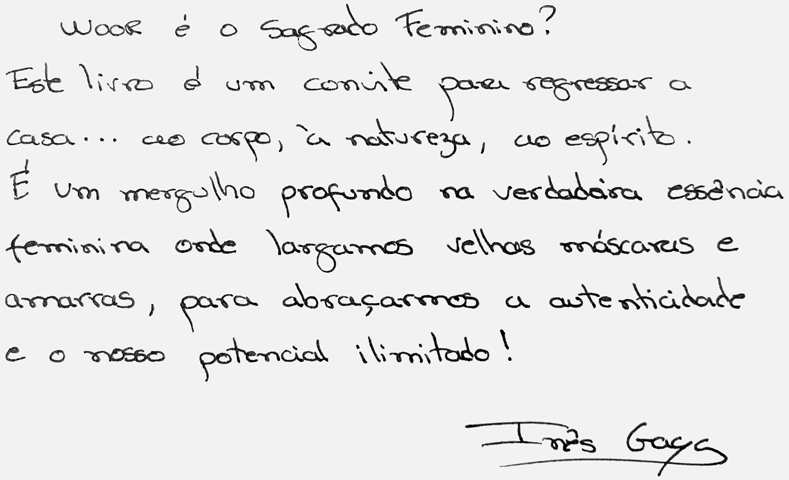 WOOR é o Sagrado Feminino?
Este livro é um convite para regressar a
casa... ao corpo, à natureza, ao espírito.
É um mergulho profundo na verdadeira essência
feminina onde largamos velhas máscaras e
amarras, para abraçarmos a autenticidade
e o nosso potencial ilimitado!
Inês Gaya